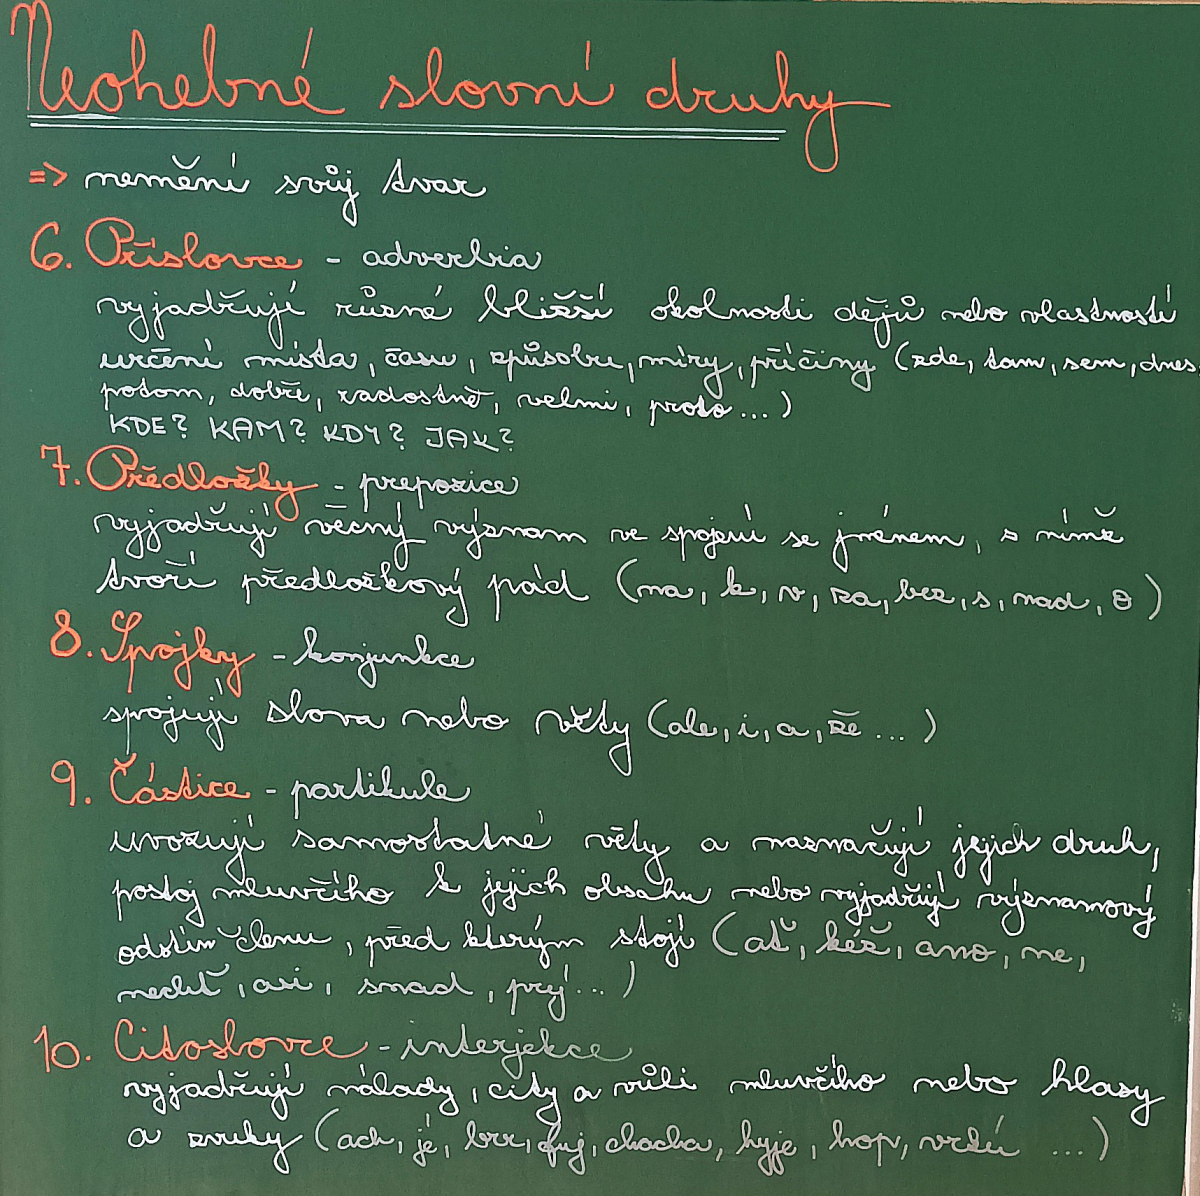 Neohebné slovní druhy
=> nemění svůj tvar
6. Příslovce - adverbia
vyjadřují různé bližší okolnosti dějů nebo vlastností
určení místa, času, způsobu, míry, příčiny (zde, tam, sem, dnes,
potom, dobře, radostně, velmi, proto...)
KDE? KAM? KDY? JAK?
7. Předložky - prepozice
vyjadřují věcný význam ve spojení se jménem, s nímž
tvoří předložkový pád (na, k, v, za, bez, s, nad, o)
8. Spojky - konjunkce
spojují slova nebo věty (ale, i, a, že ...)
9. Částice - partikule
uvozují samostatné věty a naznačují jejich druh,
postoj mluvčího k jejich obsahu nebo vyjadřují významový
odstín členu, před kterým stojí (ať, kéž, ano, ne,
nechť, asi, snad, prý...)
10. Citoslovce - interjekce
vyjadřují nálady, city a vůli mluvčího nebo hlasy
a zvuky (ach, jé, brr, fuj, chacha, hyje, hop, vrkú ...)